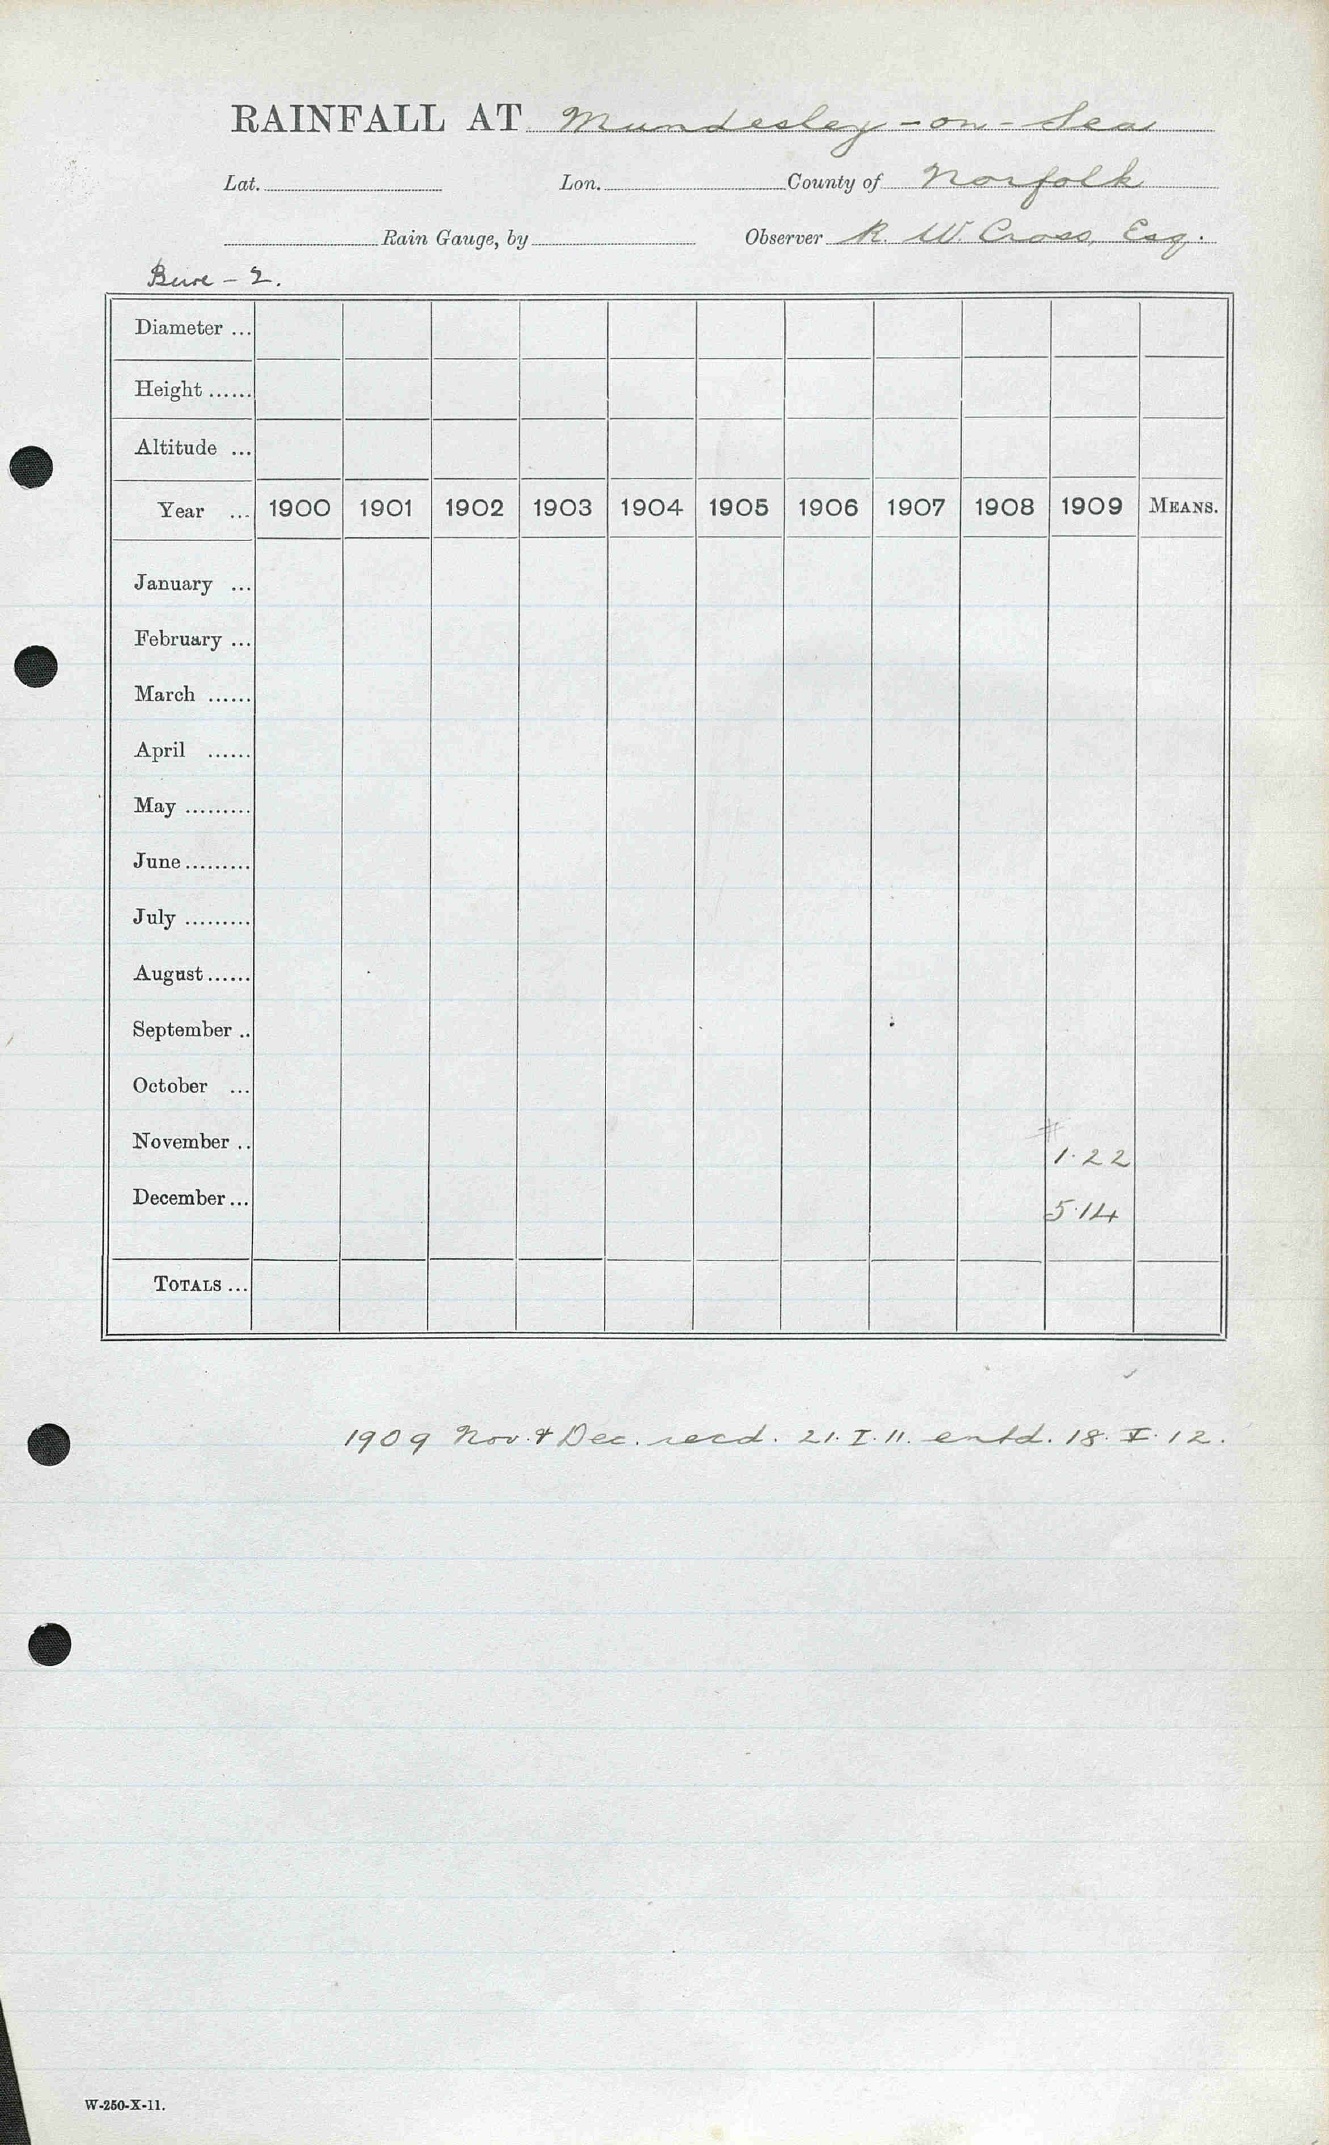 RAINFALL AT Mundesley-on-Sea
Lat. Lon. County of Norfolk
Rain Gauge, by Observer R. W. Cross, Esq.
Bure - 2.
Diameter ...
Height ......
Altitude ...
Year ... 1900 1901 1902 1903 1904 1905 1906 1907 1908 1909 MEANS.
January ...
February ...
March ......
April ......
May .........
June .........
July .........
August ......
September ..
October ...
November .. # 1.22
December ... 5.14
TOTALS ...
1909 Nov. & Dec. recd. 21. I. 11. entd. 18. X. 12.
W-250-X-11.